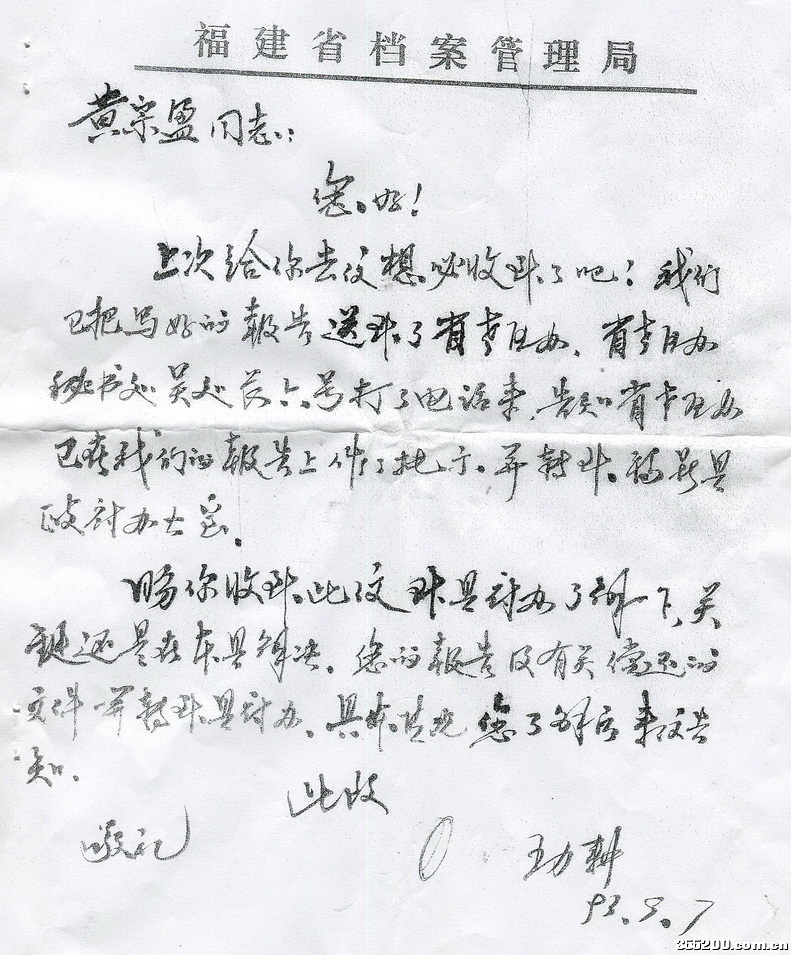 福建省档案管理局
黄宗盈同志:
您好!
上次给你去信想必收到了吧?我们
已把写好的报告送到了省老区办,省老区办
秘书处吴处长六号打了电话来,告知省老区办
已在我们的报告上作了批示,并转到
老讨办
你收到此信到县讨办了解下,关
键还是在本县解决。您的报告及有关偿还的
文件一并转到县讨办,具体情况您了解后来信告
知。
此致
敬礼
王力耕
366200.com.cn